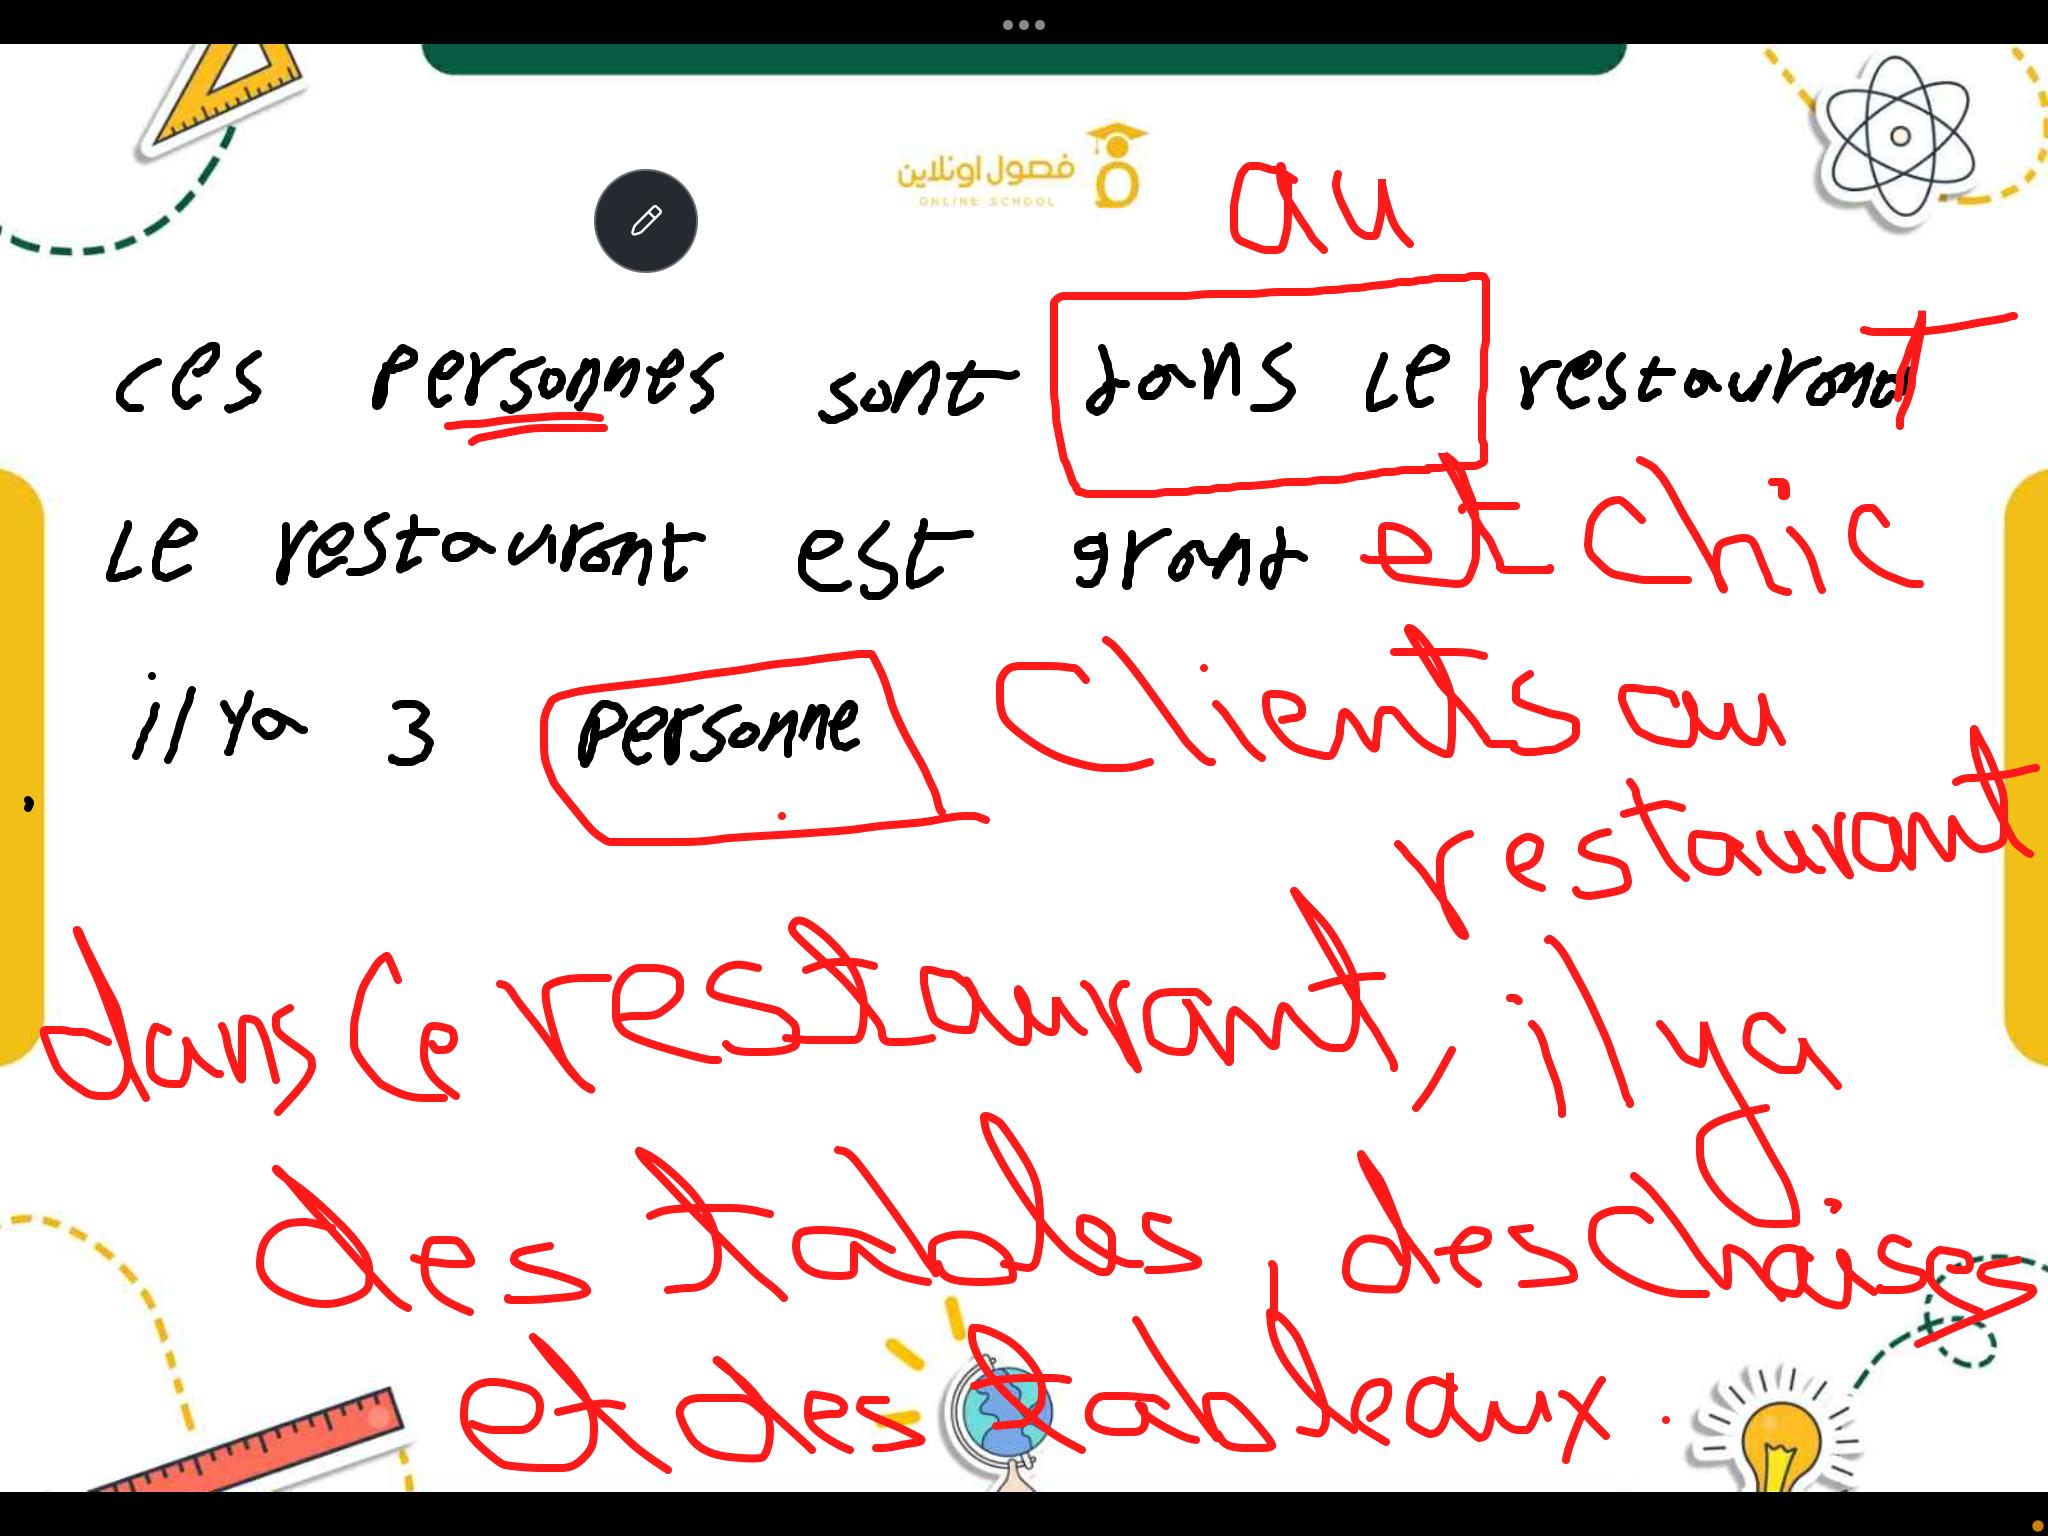 فصول اونلاين
ONLINE SCHOOL
au
ces personnes sont dans le restaurant T
Le restaurant est grand et chic
il ya 3 personne clients au
restaurant
dans ce restaurant, il ya
des tables, des chaises
et des tableaux.